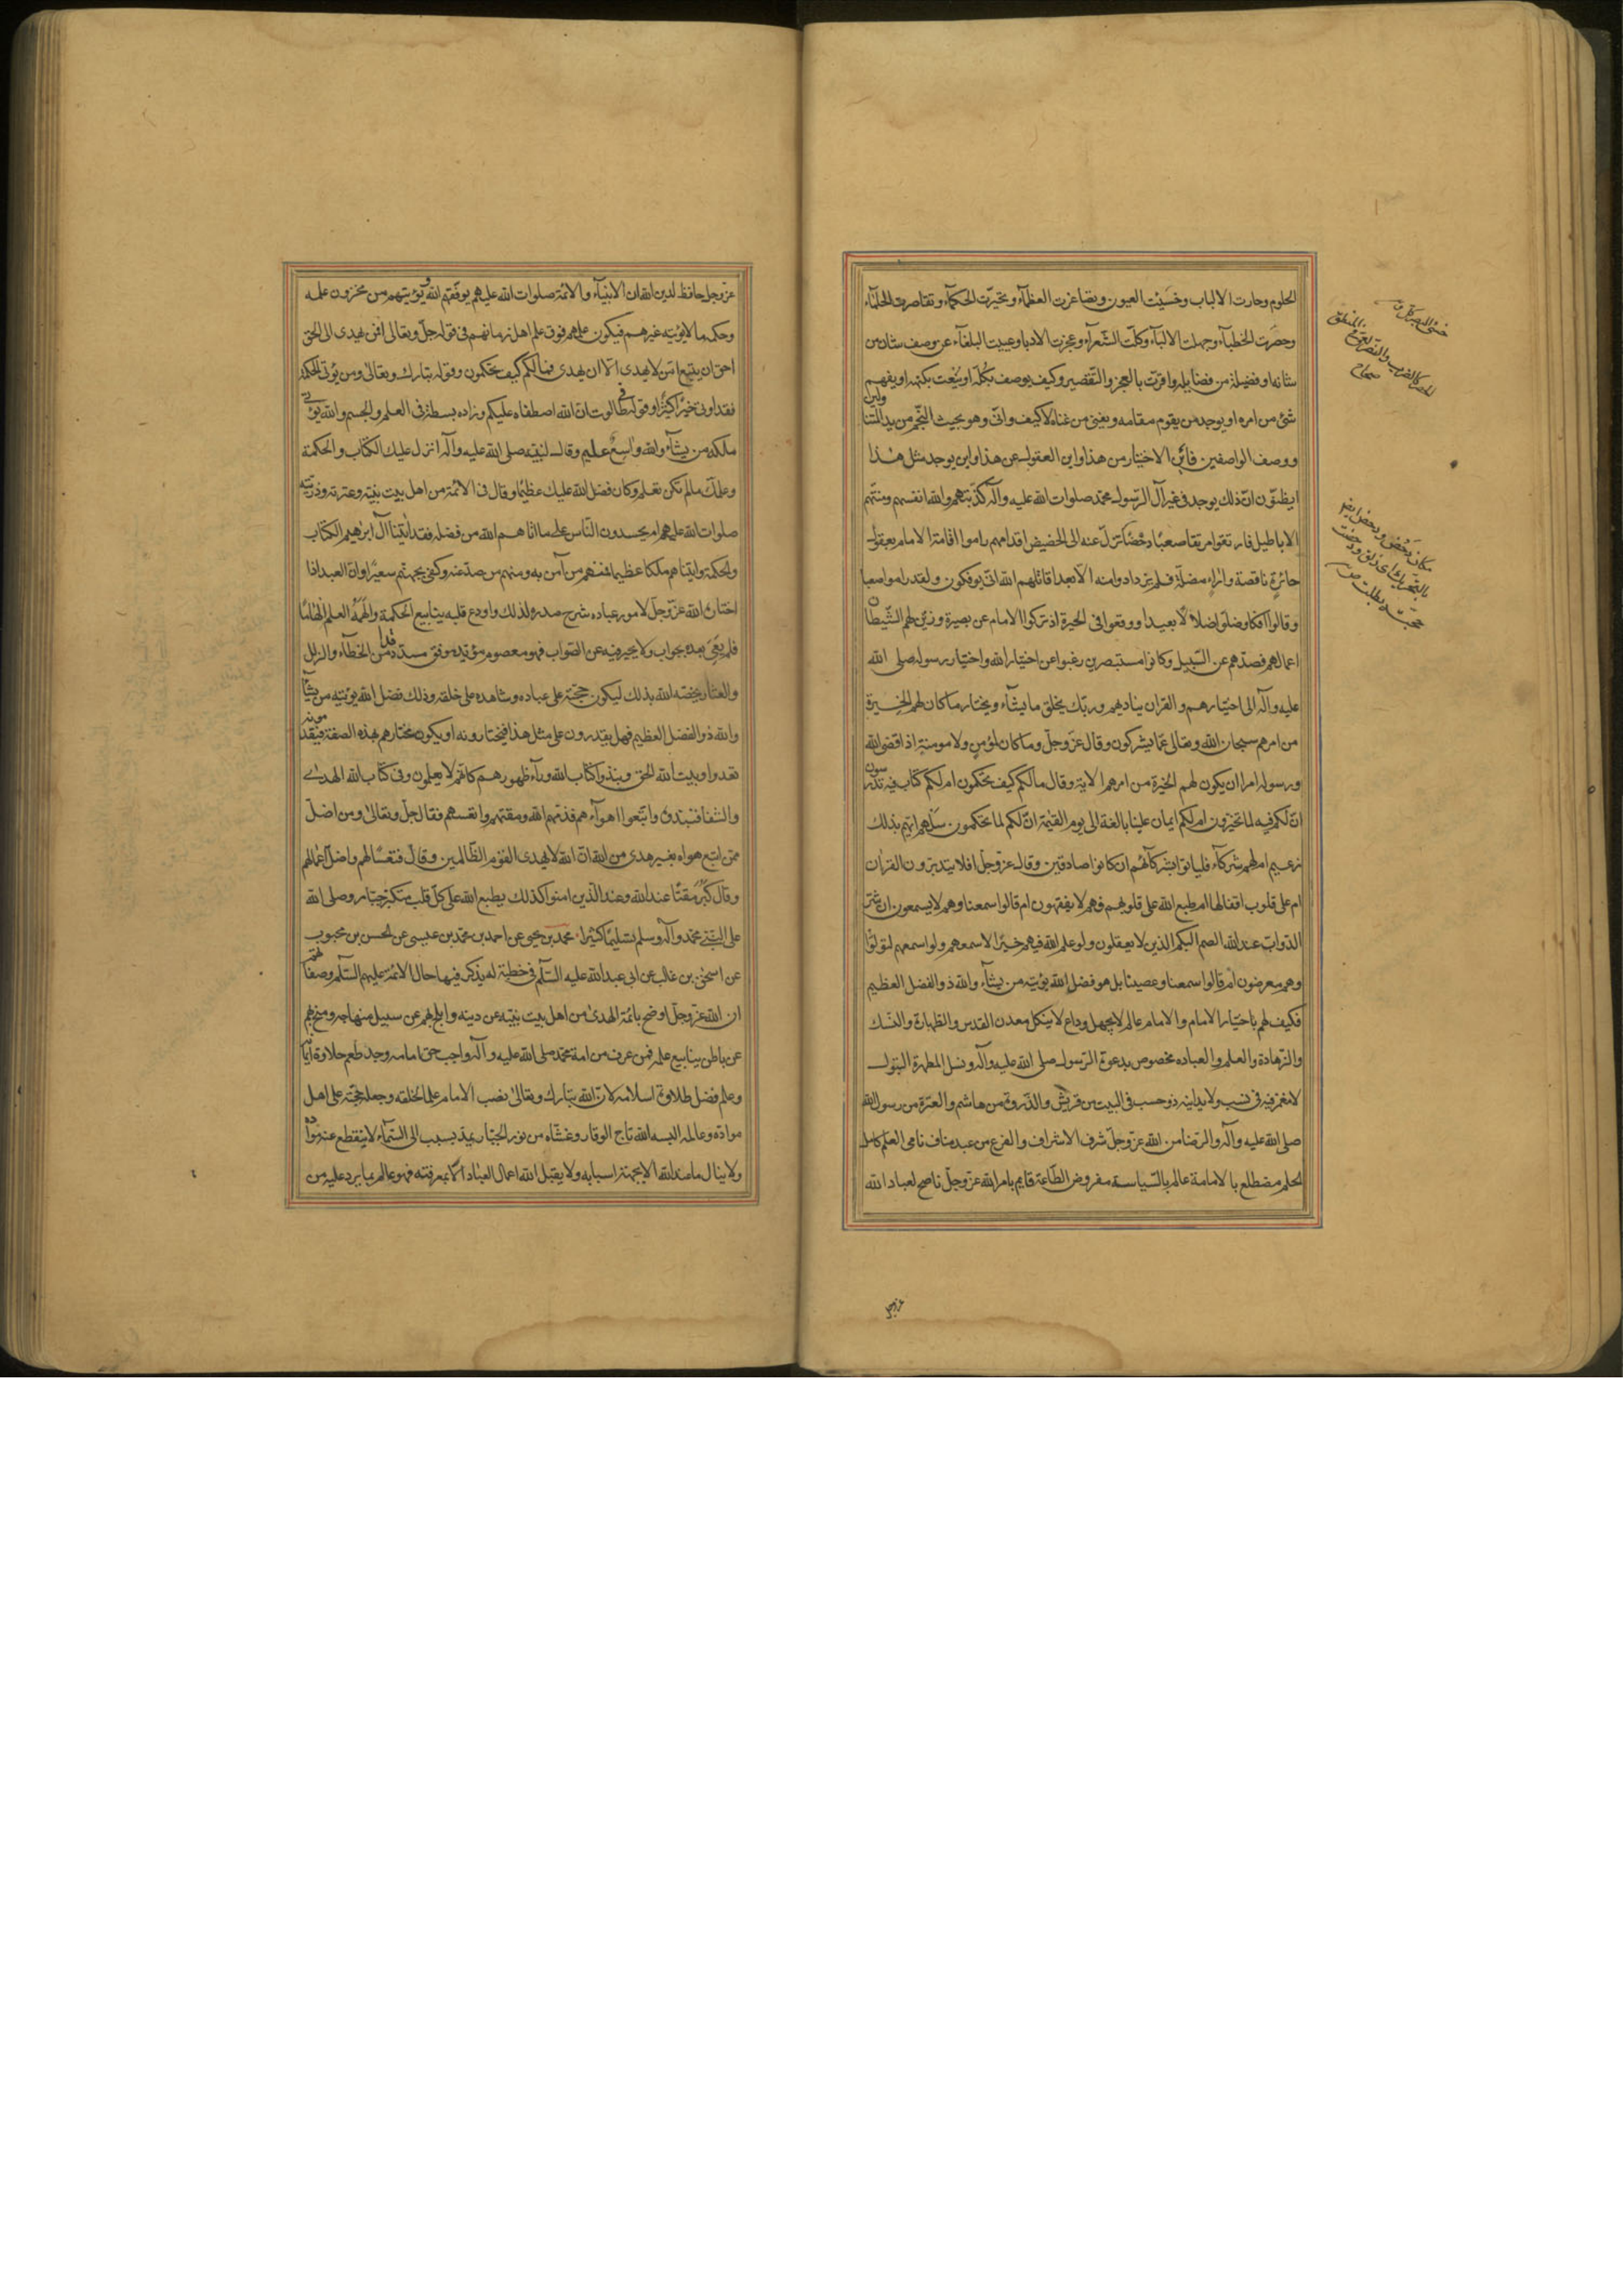 الحلوم وحارت الالباب وخسئت العيون وتصاغرت العظمآء وتحيّرت الحكمآء وتقاصرت الحلمآء
وحصرت الخطبآء وجهلت الالبآء وكلّت الشّعرآء وعجزت الادبا وعييت البلغآء عن وصف شان من
شانه او فضيلة من فضايله واقرّت بالعجز والتّقصير وكيف يوصف بكلّه او ينعت بكنهه او يفهم
شئ من امره او يوجد من يقوم مقامه ويغنى من غناه لا كيف وانّى وهو بحيث النّجم من يد المتناولين
ووصف الواصفين فاين الاختيار من هذا واين العقول عن هذا واين يوجد مثل هذا
ايظنّون انّ ذلك يوجد فى غير آل الرّسول محمّد صلوات الله عليه وآله كذّبتهم والله انفسهم ومنّتهم
الاباطيل فارتقوا مرتقا صعبًا دحضًا تزلّ عنه الى الحضيض اقدامهم راموا اقامة الامام بعقول
حائرة ناقصة وارآء مضلّة فلم يزدادوا منه الا بعدا قاتلهم الله انّى يوفكون ولقد راموا صعبا
وقالوا افكا وضلّوا ضلالاً بعيدا ووقعوا فى الحيرة اذ تركوا الامام عن بصيرة وزيّن لهم الشّيطان
اعمالهم فصدّهم عن السّبيل وكانوا مستبصرين رغبوا عن اختيار الله واختيار رسوله صلى الله
عليه وآله الى اختيارهم والقران يناديهم وربّك يخلق ما يشآء ويختار ما كان لهم الخيرة
من امرهم سبحان الله وتعالى عمّا يشركون وقال عزّ وجلّ وما كان لمؤمن ولا مومنة اذا قضى الله
ورسوله امرا ان يكون لهم الخيرة من امرهم الاية وقال مالكم كيف تحكمون ام لكم كتاب فيه تدرسون
انّ لكم فيه لما تخيّرون ام لكم ايمان علينا بالغة الى يوم القيٰمة انّ لكم لما تحكمون سلهم ايّهم بذلك
زعيم ام لهم شركآء فليأتوا بشركآئهم ان كانوا صادقين وقال عزّ وجلّ افلا يتدبّرون القران
ام على قلوب اقفالها ام طبع الله على قلوبهم فهم لا يفقهون ام قالوا سمعنا وهم لا يسمعون ان شرّ
الدّوابّ عند الله الصم البكم الذين لا يعقلون ولو علم الله فيهم خيرًا لاسمعهم ولو اسمعهم لتولّوا
وهم معرضون ام قالوا سمعنا وعصينا بل هو فضل الله يؤتيه من يشآء والله ذو الفضل العظيم
فكيف لهم باختيار الامام والامام عالم لا يجهل وداع لا ينكل معدن القدس والطهارة والنّسك
والزّهادة والعلم والعباده مخصوص بدعوة الرّسول صلى الله عليه وآله ونسل المطهرة البتول
لا مغمز فيه فى نسب ولا يدانيه ذو حسب فى البيت من قريش والذّروة من هاشم والعترة من رسول الله
صلى الله عليه وآله والرّضا من الله عزّ وجلّ شرف الاشراف والفرع من عبد مناف نامى العلم كامل
الحلم مضطلع بالامامة عالم بالسّياسة مفروض الطّاعة قايم بامر الله عزّ وجلّ ناصح لعباد الله
عزّ وجل
عزّ وجل حافظ لدين الله ان الانبيآء والائمّة صلوات الله عليهم يوفّقهم الله ويؤتيهم من مخزون علمه
وحكمه ما لا يؤتيه غيرهم فيكون علمهم فوق علم اهل زمانهم فى قوله جلّ وتعالى افمن يهدى الى الحق
احقّ ان يتّبع امّن لا يهدى الّا ان يهدى فمالكم كيف تحكمون وقوله تبارك وتعالى ومن يؤتى الحكمة
فقد اوتى خيرًا كثيرًا وقوله فى طالوت انّ الله اصطفاه عليكم وزاده بسطة فى العلم والجسم والله يؤتى
ملكه من يشآء والله واسع عليم وقال لنبيّه صلى الله عليه وآله انزل عليك الكتاب والحكمة
وعلّمك مالم تكن تعلم وكان فضل الله عليك عظيمًا وقال فى الائمّة من اهل بيت نبيّه وعترته وذريّته
صلوات الله عليهم ام يحسدون النّاس على ما اتاهم الله من فضله فقد اتينا آل ابرٰهيم الكتاب
والحكمة واتيناهم ملكا عظيما فمنهم من آمن به ومنهم من صدّ عنه وكفى بجهنّم سعيرًا وانّ العبد اذا
اختاره الله عزّ وجلّ لامور عباده شرح صدره لذلك واودع قلبه ينابيع الحكمة والهمه العلم الهامًا
فلم يعى بعده بجواب ولا يحير فيه عن الصّواب فهو معصوم مؤيّد موفق مسدّد قد امن الخطآء والزلل
والعثار يخصّه الله بذلك ليكون حجّته على عباده وشاهده على خلقه وذلك فضل الله يؤتيه من يشآء
والله ذو الفضل العظيم فهل يقدرون على مثل هذا فيختارونه او يكون مختارهم بهذه الصفة فيقدمونه
تعدوا وبيت الله الحق ونبذوا كتاب الله ورآء ظهورهم كانّهم لا يعلمون وفى كتاب الله الهدى
والشفا فنبذوه واتّبعوا اهوآءهم فذمّهم الله ومقتهم واتعسهم فقال جلّ وتعالى ومن اضلّ
ممّن اتبع هواه بغير هدى من الله انّ الله لا يهدى القوم الظّالمين وقال فتعسًا لهم واضلّ اعمالهم
وقال كبُر مقتًا عند الله وعند الّذين امنوا كذلك يطبع الله على كلّ قلب متكبّر جبّار وصلى الله
على النّبىّ محمّد وآله وسلم تسليمًا كثيرا محمّد بن يحيى عن احمد بن محمّد بن عيسى عن الحسن بن محبوب
عن اسحٰق بن غالب عن ابى عبد الله عليه السّلم فى خطبة له يذكر فيها حال الائمّة عليهم السّلم وصفاتهم
ان الله عزّ وجلّ اوضح بائمّة الهدى من اهل بيت نبيّه عن دينه وابلج بهم عن سبيل منهاجه ومنح بهم
عن باطن ينابيع علمه فمن عرف من امة محمّد صلى الله عليه وآله واجب حق امامه وجد طعم حلاوة ايمانه
وعلم فضل طلاوة اسلامه لانّ الله تبارك وتعالى نصب الامام علما لخلقه وجعله حجّة على اهل
موادّه وعالمه البسه الله تاج الوقار وغشّاه من نور الجبّار يمدّ بسبب الى السّمآء لا ينقطع عنه موادّه
ولا ينال ما عند الله الا بجهة اسبابه ولا يقبل الله اعمال العباد الّا بمعرفته فهو عالم بما يرد عليه من